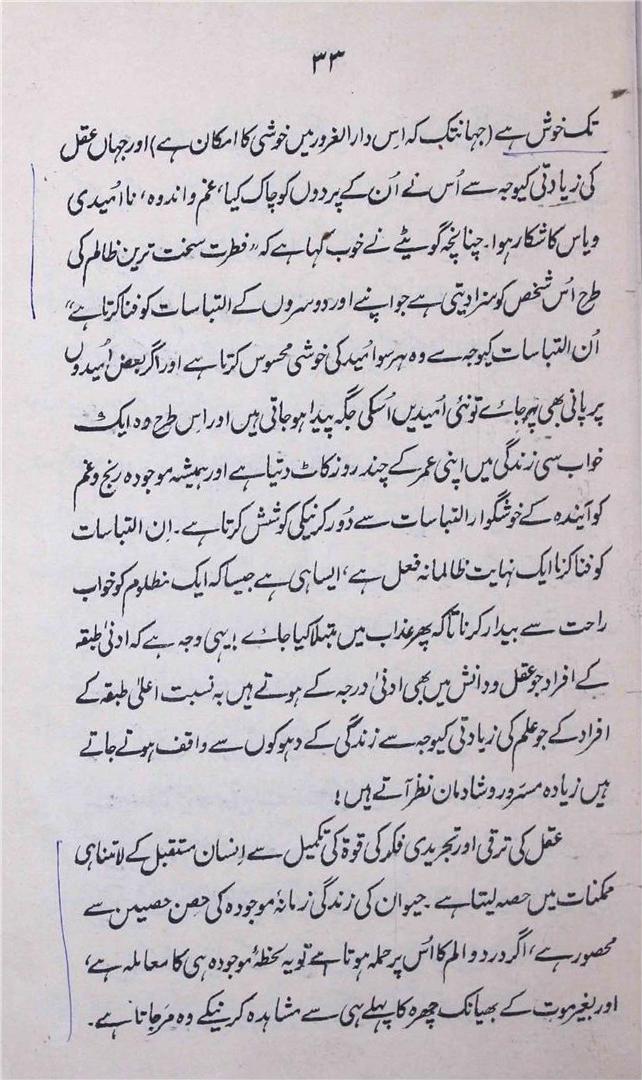 ۳۳
تک خوش ہے (جہانتک کہ اِس دارالغرور میں خوشی کا امکان ہے) اور جہاں عقل
کی زیادتی کیوجہ سے اُس نے اُن کے پردوں کو چاک کیا، غم و اندوہ، نا اُمیدی
ویاس کا شکار ہوا۔ چنانچہ گویٹے نے خوب کہا ہے کہ "فطرت سخت ترین ظالم کی
طرح اُس شخص کو سزا دیتی ہے جو اپنے اور دوسروں کے التباسات کو فنا کرتا ہے"
اُن التباسات کیوجہ سے وہ ہر سو اُمید کی خوشی محسوس کرتا ہے اور اگر بعض اُمیدوں
پر پانی بھی پھر جائے تو نئی اُمیدیں اُسکی جگہ پیدا ہو جاتی ہیں اور اِس طرح وہ ایک
خواب سی زندگی میں اپنی عمر کے چند روز کاٹ دیتا ہے اور ہمیشہ موجودہ رنج و غم
کو آیندہ کے خوشگوار التباسات سے دُور کرنیکی کوشش کرتا ہے۔ اِن التباسات
کو فنا کرنا ایک نہایت ظالمانہ فعل ہے، ایسا ہی ہے جیسا کہ ایک مظلوم کو خواب
راحت سے بیدار کرنا تاکہ پھر عذاب میں مبتلا کیا جائے! یہی وجہ ہے کہ ادنیٰ طبقہ
کے افراد جو عقل و دانش میں بھی ادنیٰ درجہ کے ہوتے ہیں بہ نسبت اعلیٰ طبقہ کے
افراد کے جو علم کی زیادتی کیوجہ سے زندگی کے دہوکوں سے واقف ہوتے جاتے
ہیں زیادہ مسرور و شادمان نظر آتے ہیں!
عقل کی ترقی اور تجریدی فکر کی قوۃ کی تکمیل سے اِنسان مستقبل کے لاتناہی
ممکنات میں حصہ لیتا ہے۔ حیوان کی زندگی زمانۂ موجودہ کی حِصن حصین سے
محصور ہے، اگر درد و الم کا اُس پر حملہ ہوتا ہے تو یہ لحظۂ موجودہ ہی کا معاملہ ہے،
اور بغیر موت کے بھیانک چہرہ کا پہلے ہی سے مشاہدہ کرنیکے وہ مرجاتا ہے۔